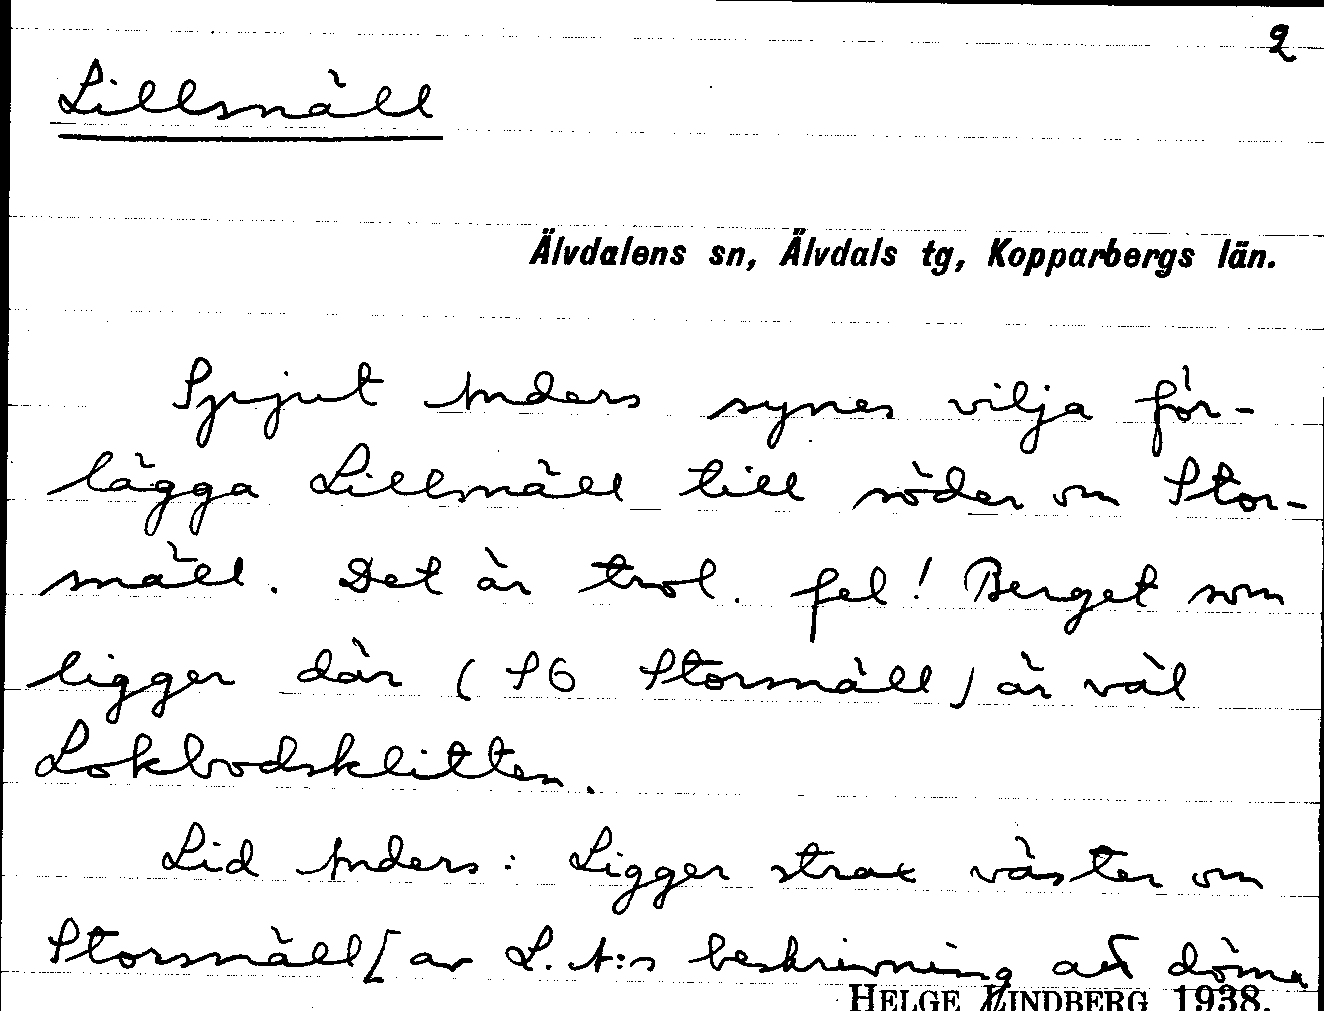 2
Lillsmäll
Älvdalens sn, Älvdals tg, Kopparbergs län.
Spjut Anders synes vilja för-
lägga Lillsmäll till söder om Stor-
smäll. Det är trol. fel! Berget som
ligger där (SO Storsmäll) är väl
Lokbodsklitten.
Lid Anders: Ligger strax väster om
Storsmäll [av L. A:s beskrivning att döma
HELGE LINDBERG 1938.